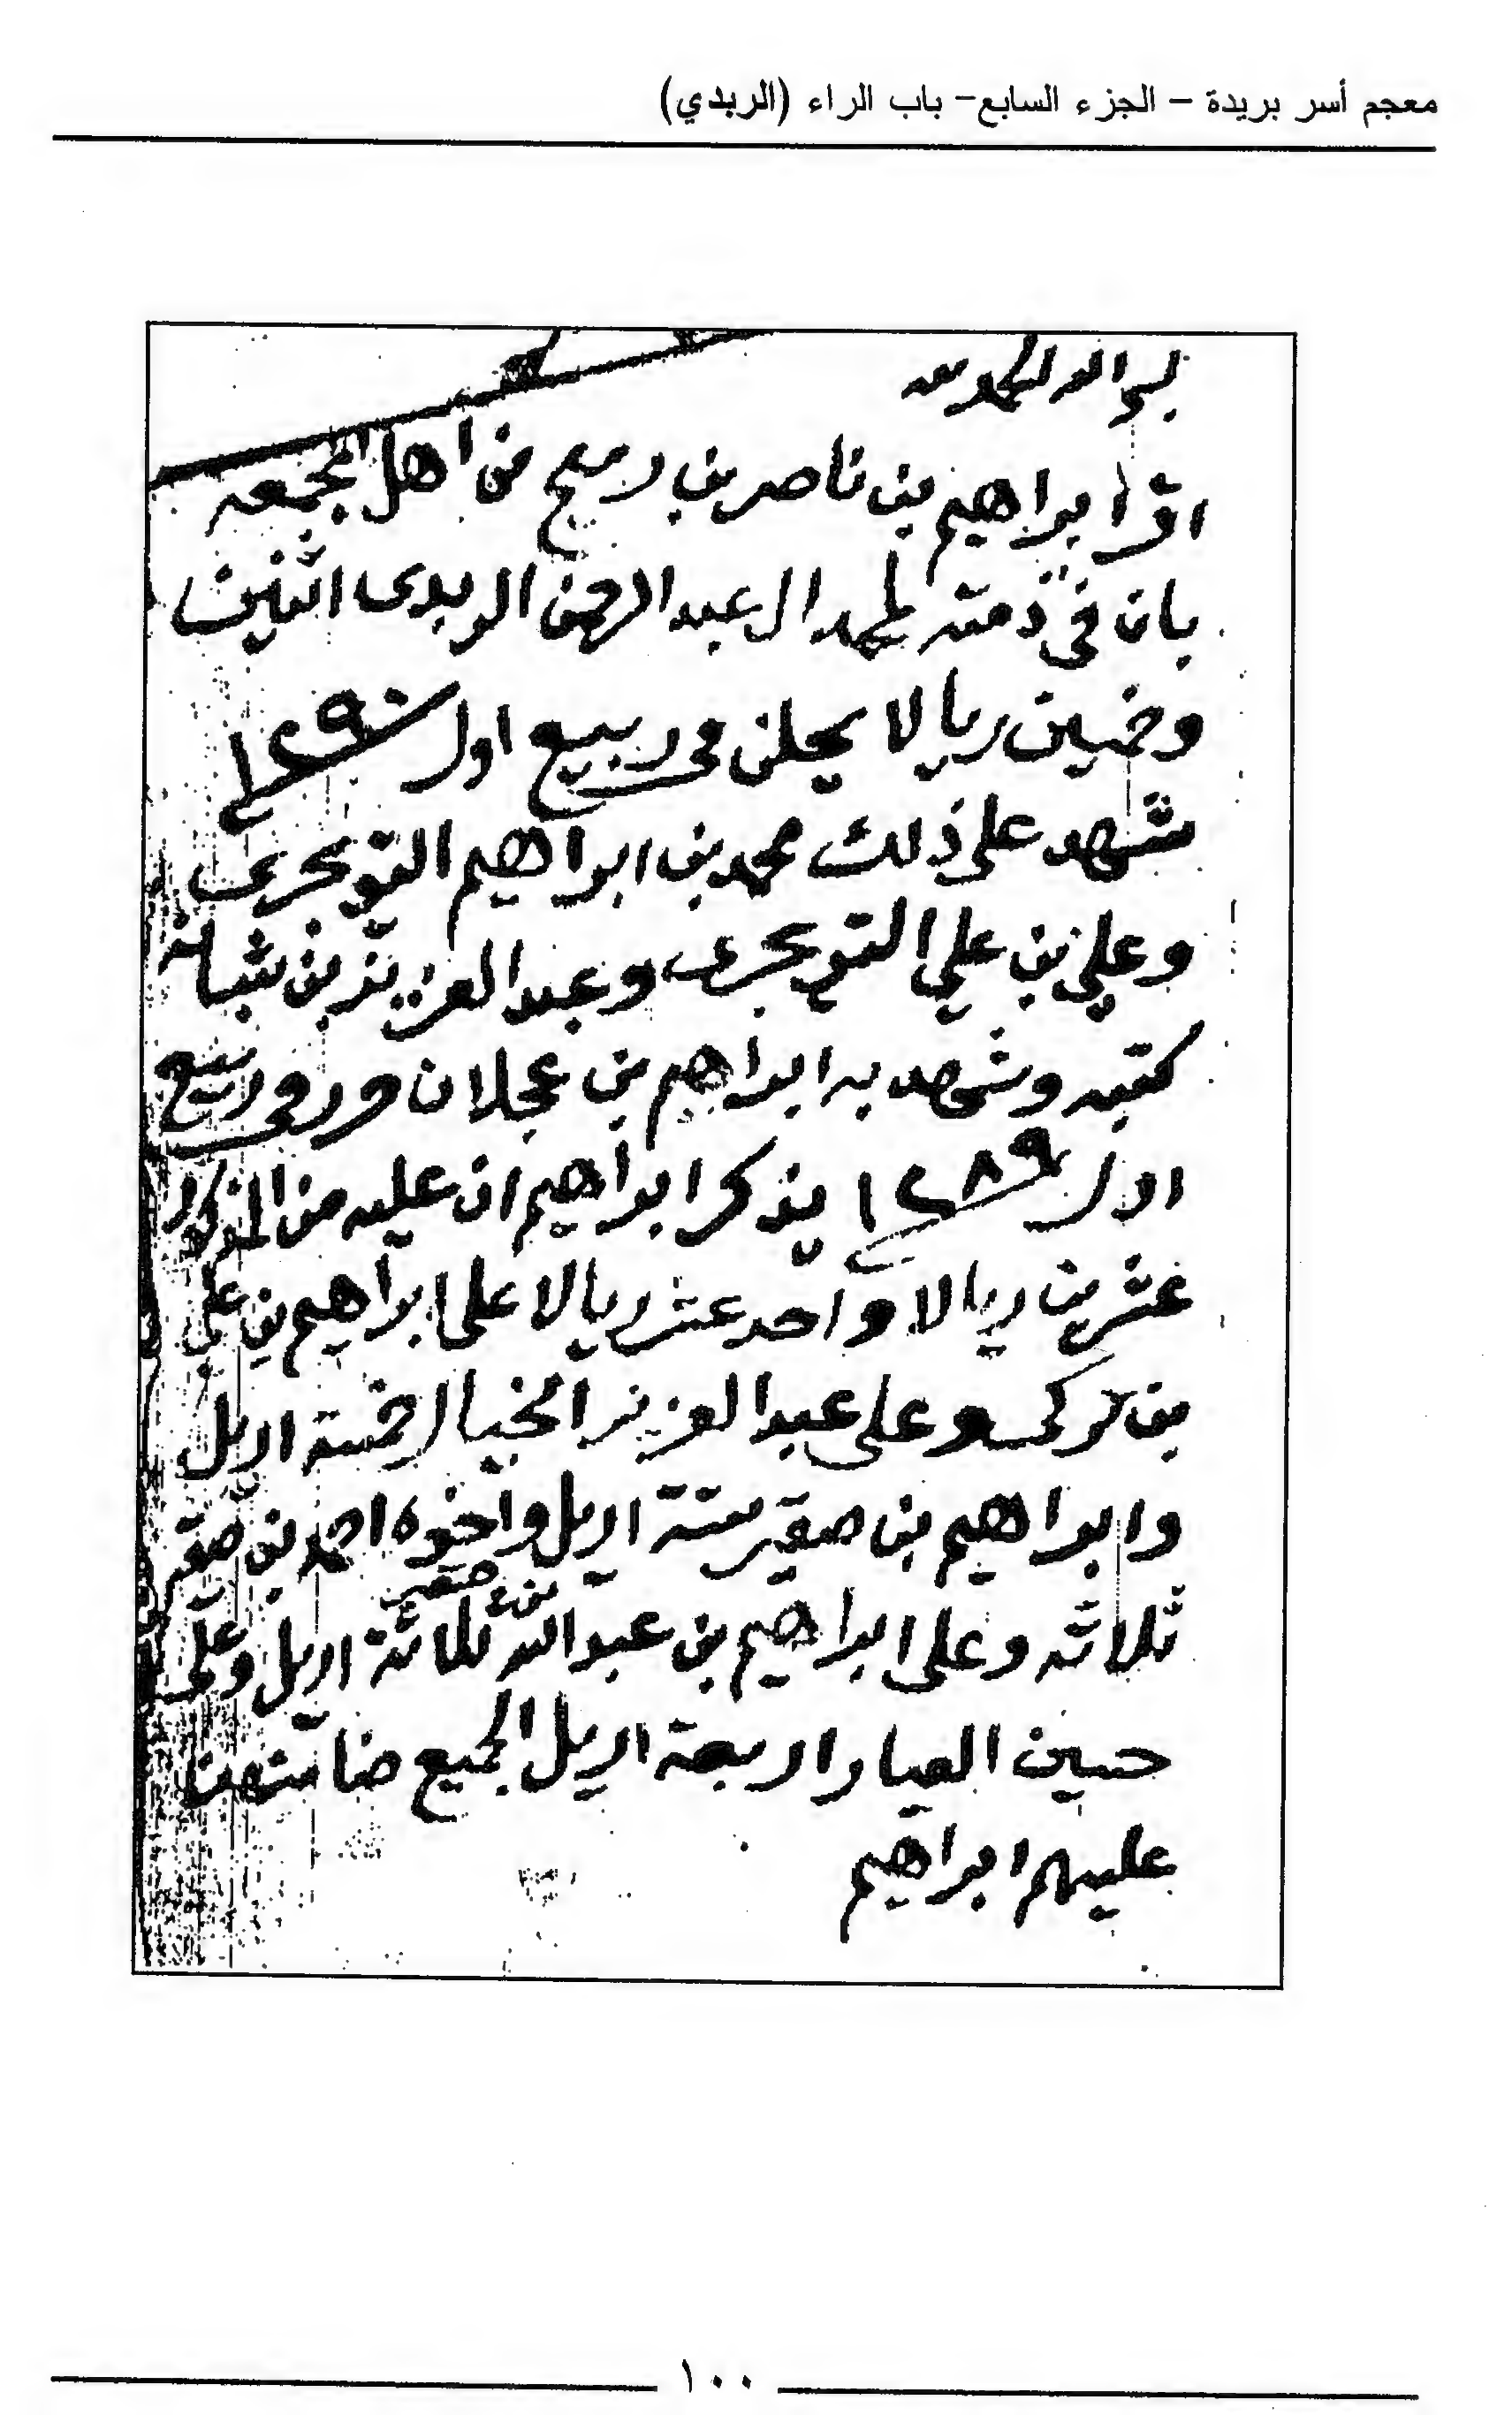 معجم أسر بريدة – الجزء السابع– باب الراء (الربدي)
بسم الله الحمد لله
اقر ابراهيم بن ناصر بن رميح من اهل المجمعه
بان في ذمته لمحمد ال عبد الرحمن الربدى اثنين
وخمسين ريالا يحلن في ربيع اول ١٢٩٠
شهد على ذلك محمد بن ابراهيم التويجرى
وعلي بن علي التويجرى وعبد العزيز بن شبانه
كتبه وشهد به ابراهيم بن عجلان حرر في ربيع
اول ١٢٨٩ يذكر ابراهيم ان عليه من المذكور
عشرين ريالا واحد عشر ريالا على ابراهيم بن علي
بن تركي وعلى عبد العزيز الخيال خمسة اريل
وابراهيم بن صقير ستة اريل واخوه احمد بن صقير
ثلاثه وعلى ابراهيم بن عبد الله بن صقير ثلاثة اريل وعلى
حسين العيار اربعة اريل الجميع ضامنهن
عليهم ابراهيم
١٠٠